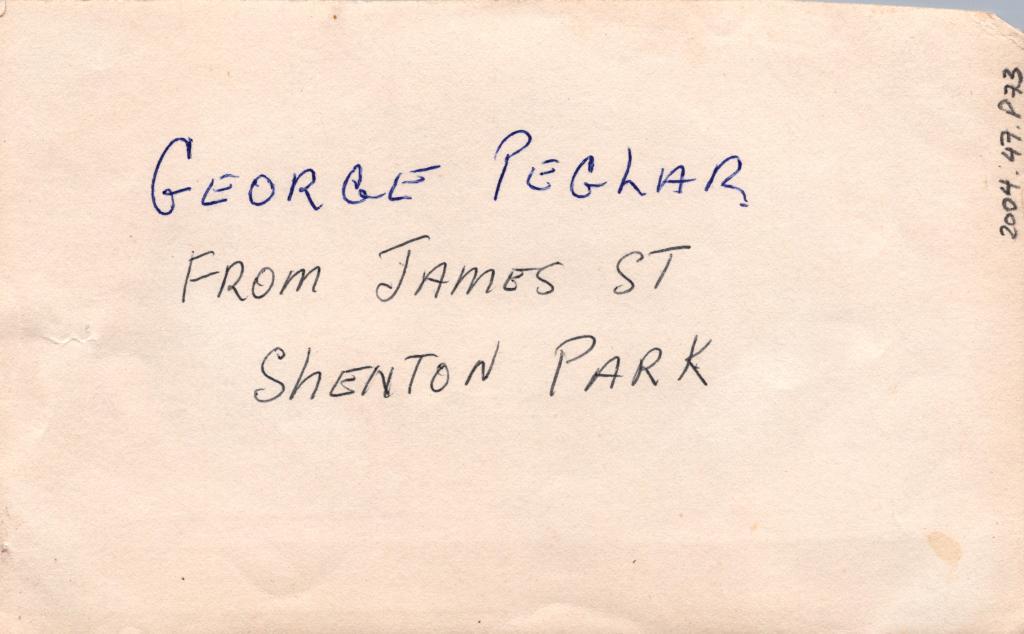 GEORGE PEGLAR
FROM JAMES ST
SHENTON PARK
2004.47.P73